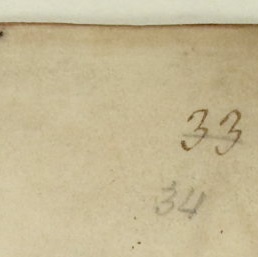 33
34